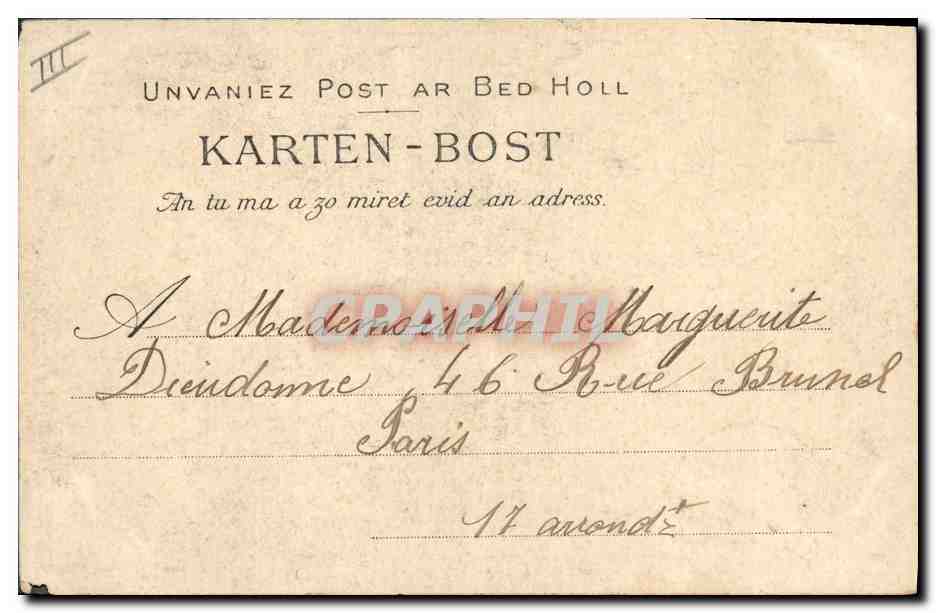 III
UNVANIEZ POST AR BED HOLL
KARTEN-BOST
An tu ma a zo miret evid an adress.
GRAPHIL
A Mademoiselle Marguerite
Dieudonne 46 Rue Brunel
Paris
17 arrondt